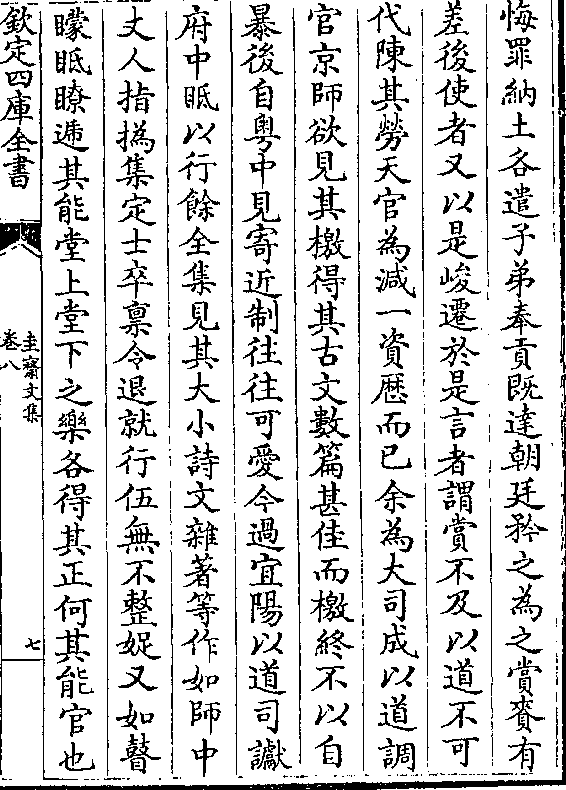 悔罪納土各遣子弟奉貢既達朝廷矜之為之賞賚有
差後使者又以是峻遷於是言者謂賞不及以道不可
代陳其勞天官為減一資歴而已余為大司成以道調
官京師欲見其檄得其古文數篇甚佳而檄終不以自
暴後自粤中見寄近制往往可愛今過宜陽以道司讞
府中眂以行餘全集見其大小詩文雜著等作如師中
丈人指撝集定士卒禀令退就行伍無不整娖又如瞽
矇眂瞭遞其能堂上堂下之樂各得其正何其能官也
欽定四庫全書
圭齋文集
卷八
七